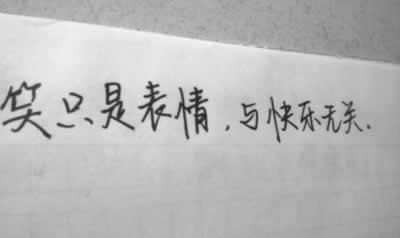 笑只是表情,与快乐无关.